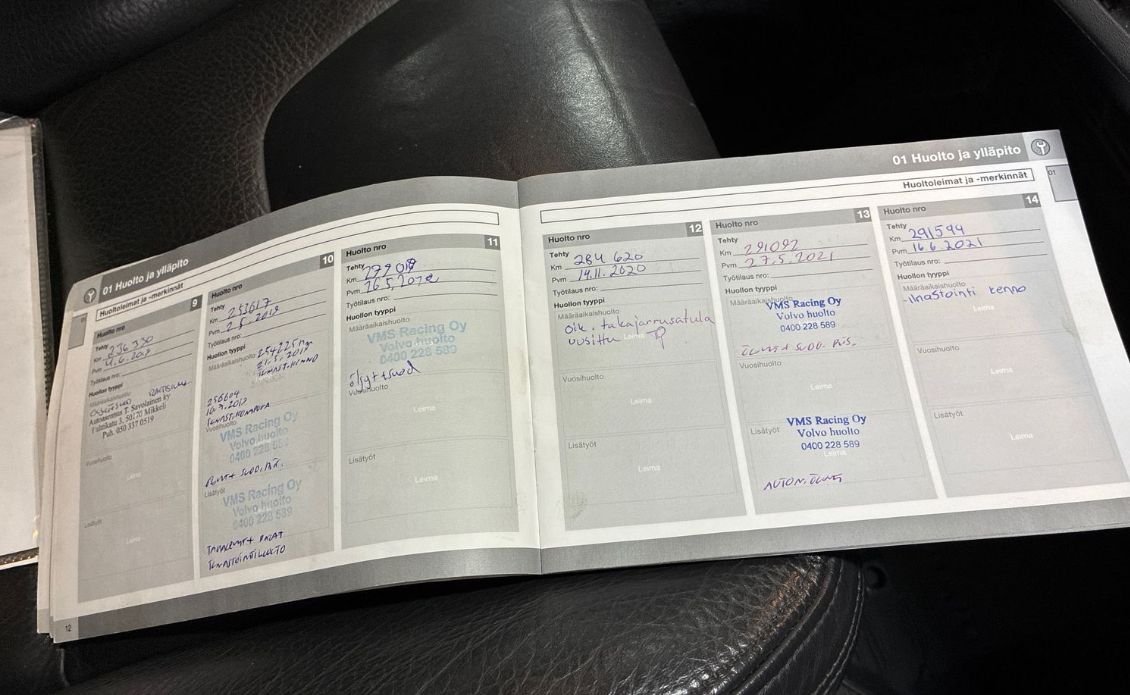 01 Huolto ja ylläpito
Huoltoleimat ja -merkinnät
9
Huolto nro
Tehty
Km 236 330
Pvm
Työtilaus nro:
Huollon tyyppi
Määräaikaishuolto
Autoasennus T. Savolainen ky
50170 Mikkeli
Puh. 050 337 0519
Vuosihuolto
Leima
Lisätyöt
Leima
12
10
Huolto nro
Tehty
Km 253617
Pvm 2.5.2019
Työtilaus nro:
Huollon tyyppi
Määräaikaishuolto
254225 km
21.5.2019
256604
Vuosihuolto
VMS Racing Oy
Volvo huolto
0400 228 589
Lisätyöt
VMS Racing Oy
Volvo huolto
0400 228 589
11
Huolto nro
Tehty
Km
Pvm
Työtilaus nro:
Huollon tyyppi
Määräaikaishuolto
VMS Racing Oy
Volvo huolto
0400 228 589
öljyt+suod
Vuosihuolto
Leima
Lisätyöt
Leima
01 Huolto ja ylläpito
01
Huoltoleimat ja -merkinnät
12
Huolto nro
Tehty
Km 284 620
Pvm 14.11.2020
Työtilaus nro:
Huollon tyyppi
Määräaikaishuolto
Oik. takajarrusatula
uusittu
Leima
Vuosihuolto
Leima
Lisätyöt
Leima
13
Huolto nro
Tehty
Km 291092
Pvm 27.5.2021
Työtilaus nro:
Huollon tyyppi
Määräaikaishuolto
VMS Racing Oy
Volvo huolto
0400 228 589
Vuosihuolto
Leima
Lisätyöt
VMS Racing Oy
Volvo huolto
0400 228 589
Leima
14
Huolto nro
Tehty
Km 291594
Pvm 16.6.2021
Työtilaus nro:
Huollon tyyppi
Määräaikaishuolto
-Ilmastointi kenno
Leima
Vuosihuolto
Leima
Lisätyöt
Leima